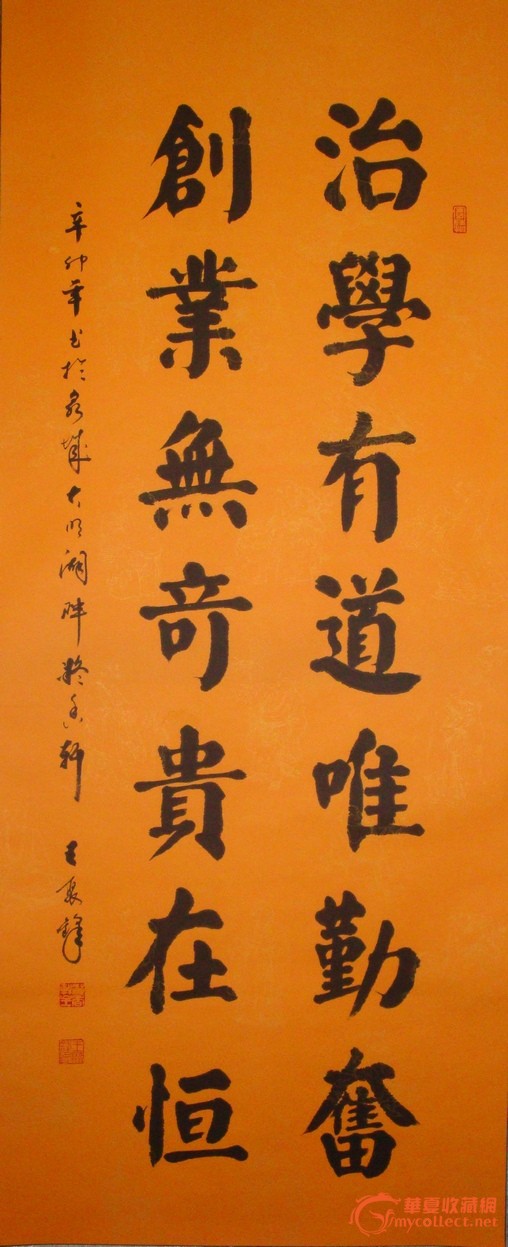 治學有道唯勤奮
創業無奇貴在恒
辛卯年書於泉城大明湖畔凝香軒
華夏收藏網
mycollect.net